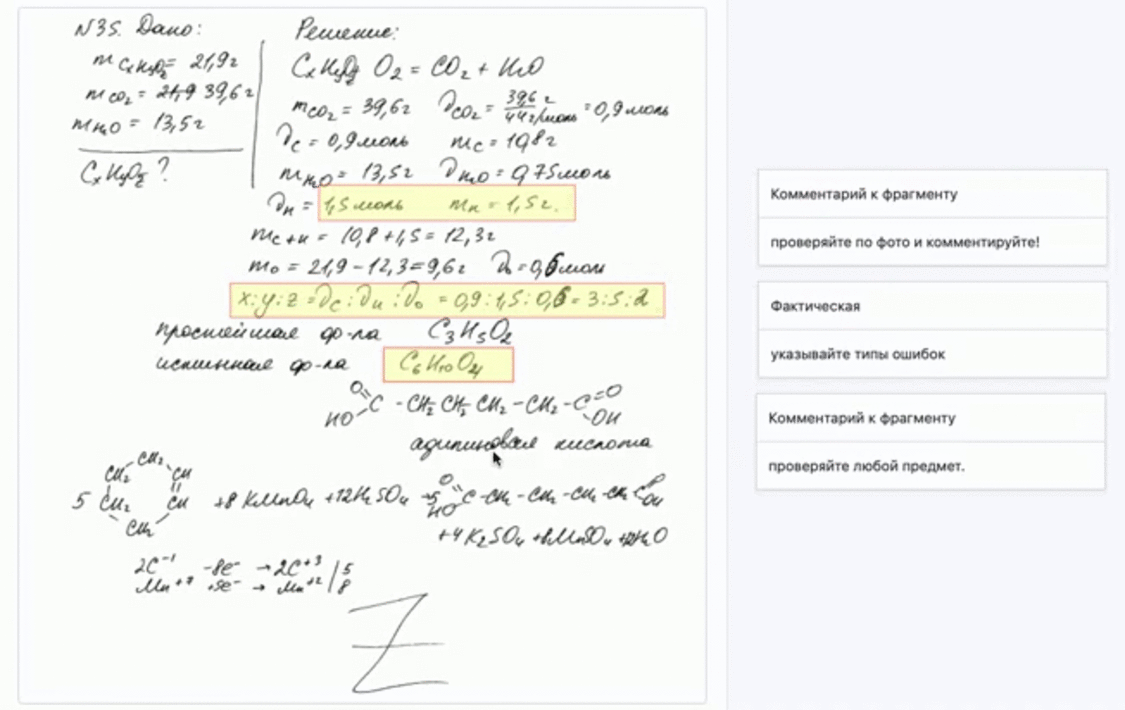 N35. Дано:
m CxHyOz = 21,9г
m CO2 = 21,9 39,6г
m H2O = 13,5г
CxHyOz ?
Решение:
CxHyOz O2 = CO2 + H2O
mCO2 = 39,6г νCO2 = 39,6 г / 44г/моль = 0,9 моль
νC = 0,9 моль mC = 10,8г
mH2O = 13,5г νH2O = 0,75моль
νH = 1,5 моль mH = 1,5г.
mC+H = 10,8 + 1,5 = 12,3г
mO = 21,9 - 12,3 = 9,6г νO = 0,6 моль
x:y:z = νC : νH : νO = 0,9 : 1,5 : 0,6 = 3:5:2
простейшая ф-ла C3H5O2
истинная ф-ла C6H10O4
O=C -CH2 CH2 CH2 -CH2 -C=O
HO OH
адипиновая кислота
CH2 CH2 CH
5 CH2 CH + 8 KMnO4 + 12H2SO4 → 5 O=C -CH2 -CH2 -CH2 -CH2 C=O
CH2 HO OH
+4 K2SO4 + 8MnSO4 + 12H2O
2C-1 -8e- → 2C+3 | 5
Mn+7 +5e- → Mn+2 | 8
Комментарий к фрагменту
проверяйте по фото и комментируйте!
Фактическая
указывайте типы ошибок
Комментарий к фрагменту
проверяйте любой предмет.